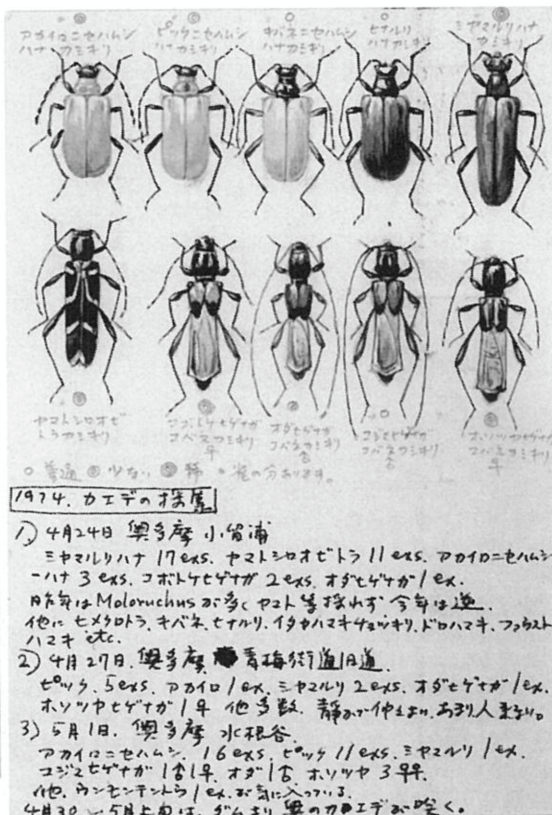 アカイロニセハムシ
ハナカミキリ
ピックニセハムシ
ハナカミキリ
キバネニセハムシ
ハナカミキリ
ヒナルリ
ハナカミキリ
ミヤマルリハナ
カミキリ
ヤマトシロオビ
トラカミキリ
コボトケヒゲナガ
コバネカミキリ
♀
オダヒゲナガ
コバネカミキリ
♂
コジマヒゲナガ
コバネカミキリ
♂
ホソツヤヒゲナガ
コバネカミキリ
♀
○普通 ◎少ない 稀
1974. カエデの採集
1) 4月24日 奥多摩 小留浦
ミヤマルリハナ 17exs. ヤマトシロオビトラ 11exs. アカイロニセハムシ
ーハナ 3exs. コボトケヒゲナガ 2exs. オダヒゲナガ 1ex.
昨年はMoloruchusが多く ヤマト等採れず 今年は逆.
他に ヒメクロトラ、キバネ、ヒナルリ、イタヤハマキチョッキリ、ドロハマキ、ファウスト
ハマキ etc.
2) 4月27日. 奥多摩 青梅街道旧道.
ピック. 5exs. アカイロ 1ex. ミヤマルリ 2exs. オダヒゲナガ 1ex.
ホソツヤヒゲナガ 1♀ 他多数. 静かで
3) 5月1日. 奥多摩 水根谷.
アカイロニセハムシ. 16exs. ピック 11exs. ミヤマルリ 1ex.
コジマヒゲナガ 1♂1♀. オダ 1♂ ホソツヤ 3♀♀.
他. ウンモンテントウ 1ex. お気に入っている.
4月30〜5月上旬は. ダムより 奥のカエデが咲く。